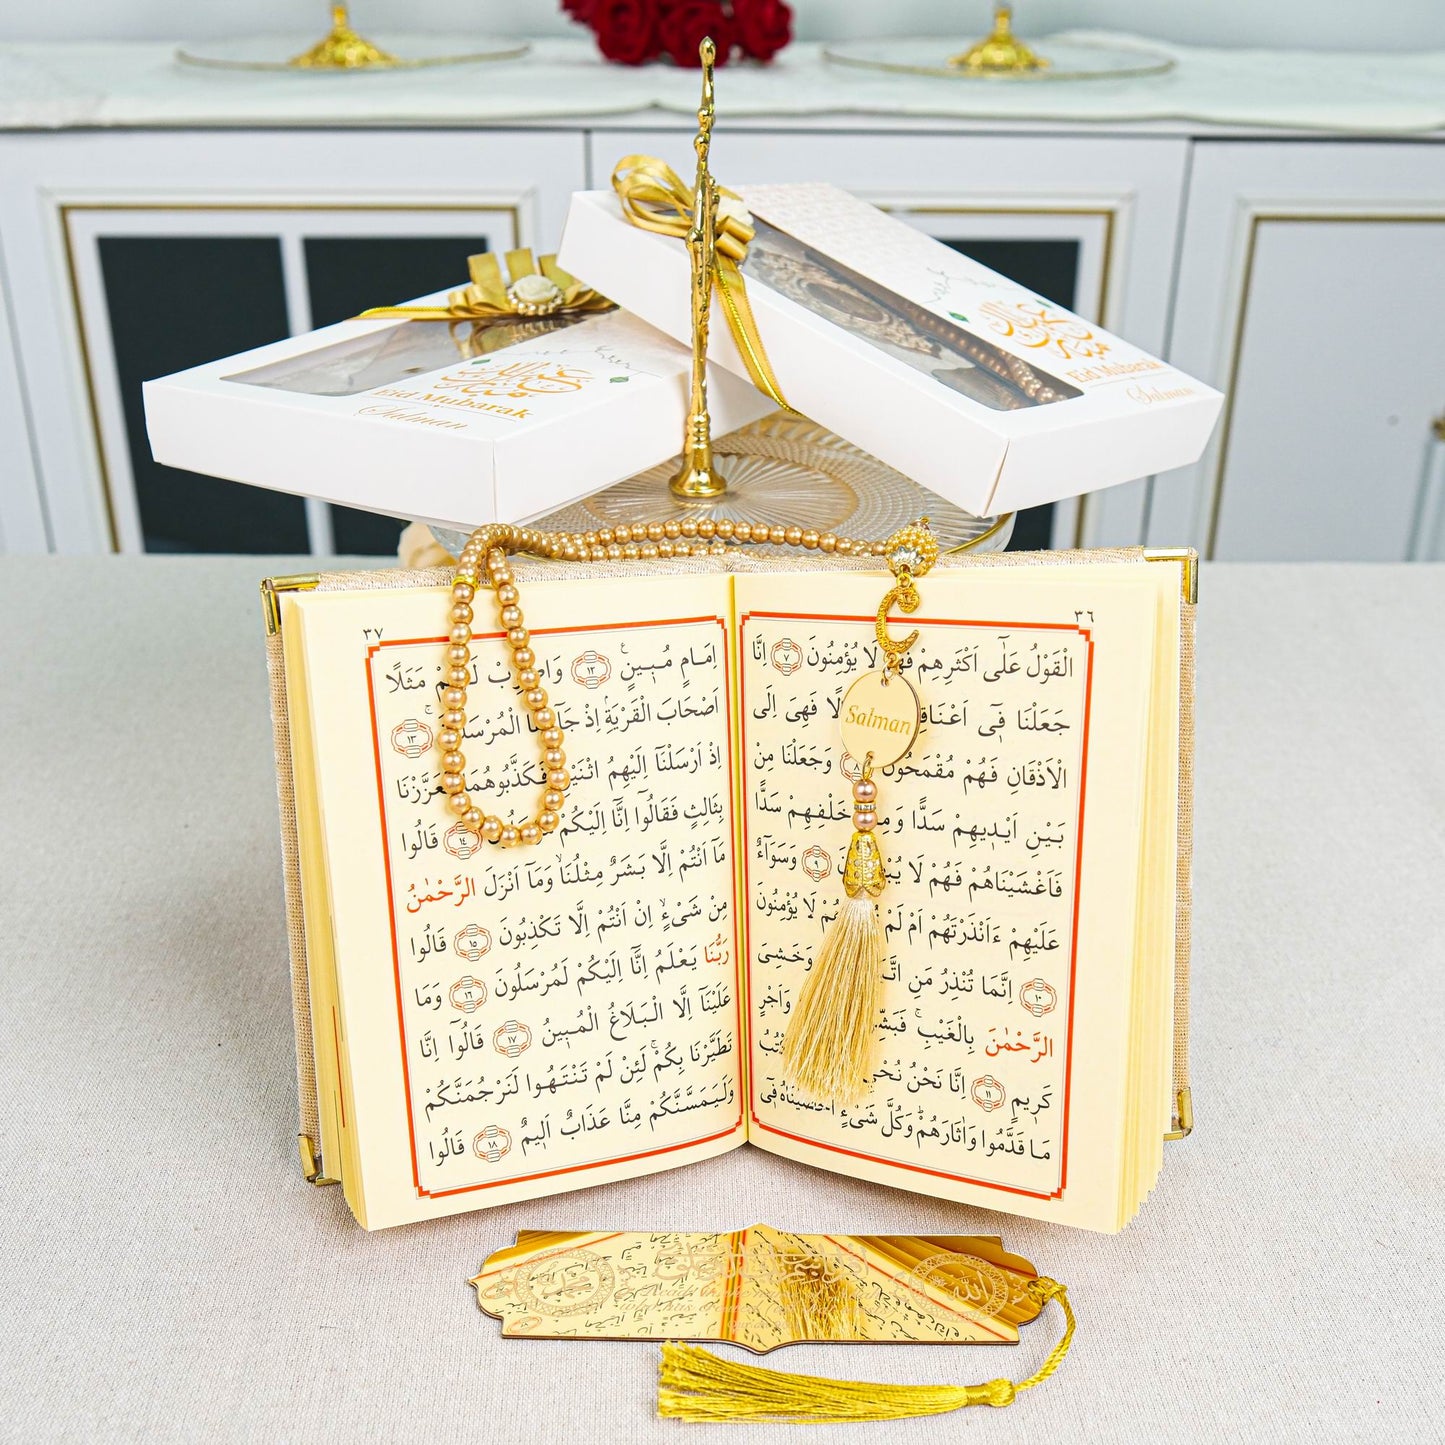 عيد مبارك
Eid Mubarak
Salman
عيد مبارك
Eid Mubarak
Salman
٣٦
الْقَوْلُ عَلٰٓى اَكْثَرِهِمْ فَهُمْ لَا يُؤْمِنُونَ ٧ اِنَّا
جَعَلْنَا فٖٓى فَهِىَ اِلَى
الْاَذْقَانِ فَهُمْ مُقْمَحُونَ ٨ وَجَعَلْنَا مِنْ
بَيْنِ اَيْدٖيهِمْ سَدًّا وَمِنْ خَلْفِهِمْ سَدًّا
فَاَغْشَيْنَاهُمْ فَهُمْ لَا ٩ وَسَوَٓاءٌ
عَلَيْهِمْ ءَاَنْذَرْتَهُمْ اَمْ لَمْ لَا يُؤْمِنُونَ
١٠ اِنَّمَا تُنْذِرُ مَنِ وَخَشِىَ
الرَّحْمٰنَ بِالْغَيْبِۚ وَاَجْرٍ
كَرٖيمٍ ١١ اِنَّا نَحْنُ
مَا قَدَّمُوا وَاٰثَارَهُمْۜ وَكُلَّ شَىْءٍ اَحْصَيْنَاهُ فٖٓى
Salman
٣٧
اِمَامٍ مُبٖينٍۚ ١٢ وَاضْرِبْ لَهُمْ مَثَلًا
اَصْحَابَ الْقَرْيَةِۢ اِذْ جَٓاءَهَا الْمُرْسَلُونَۚ ١٣
اِذْ اَرْسَلْنَٓا اِلَيْهِمُ اثْنَيْنِ فَكَذَّبُوهُمَا فَعَزَّزْنَا
بِثَالِثٍ فَقَالُٓوا اِنَّٓا اِلَيْكُمْ مُرْسَلُونَ ١٤ قَالُوا
مَٓا اَنْتُمْ اِلَّا بَشَرٌ مِثْلُنَاۙ وَمَٓا اَنْزَلَ الرَّحْمٰنُ
مِنْ شَىْءٍۙ اِنْ اَنْتُمْ اِلَّا تَكْذِبُونَ ١٥ قَالُوا
رَبُّنَا يَعْلَمُ اِنَّٓا اِلَيْكُمْ لَمُرْسَلُونَ ١٦ وَمَا
عَلَيْنَٓا اِلَّا الْبَلَاغُ الْمُبٖينُ ١٧ قَالُٓوا اِنَّا
تَطَيَّرْنَا بِكُمْۚ لَئِنْ لَمْ تَنْتَهُوا لَنَرْجُمَنَّكُمْ
وَلَيَمَسَّنَّكُمْ مِنَّا عَذَابٌ اَلٖيمٌ ١٨ قَالُوا
الله